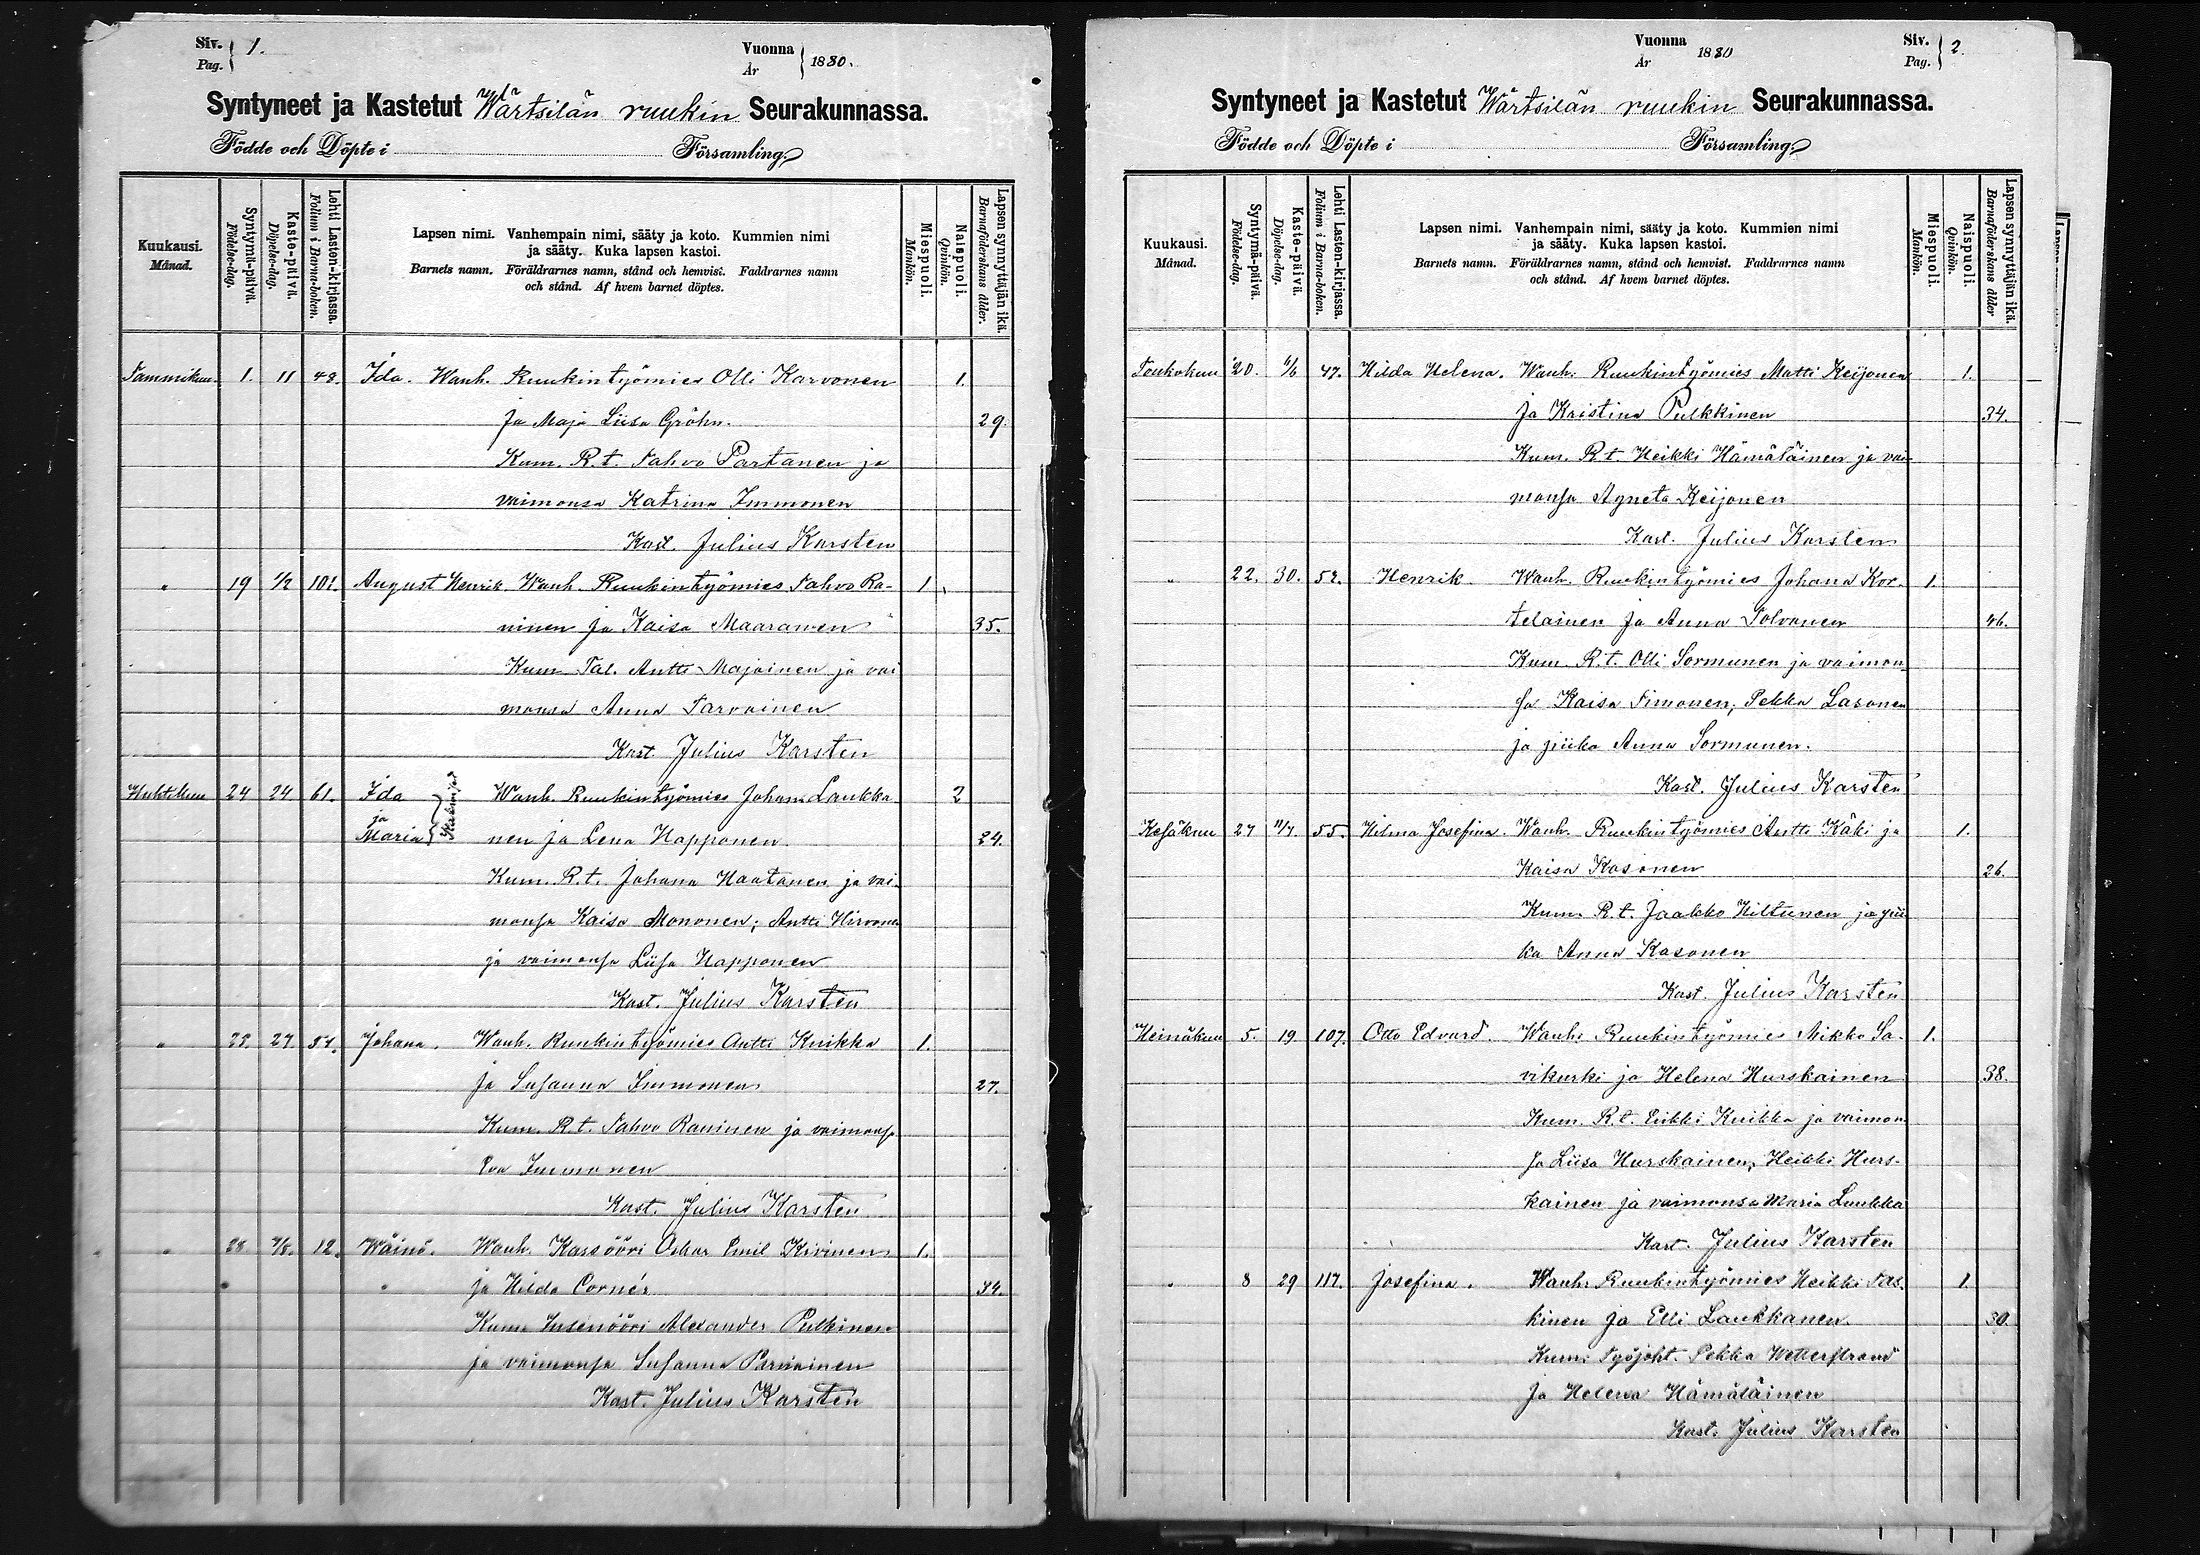 Siv. Pag. } 1.
Vuonna År } 1880.
Syntyneet ja Kastetut Wärtsilän ruukin Seurakunnassa.
Födde och Döpte i Församling.
Kuukausi. Månad.
Syntymä-päivä. Födelse-dag.
Kaste-päivä. Döpelse-dag.
Lehti Lasten-kirjassa. Folium i Barna-boken.
Lapsen nimi. Vanhempain nimi, sääty ja koto. Kummien nimi
ja sääty. Kuka lapsen kastoi.
Barnets namn. Föräldrarnes namn, stånd och hemvist. Faddrarnes namn
och stånd. Af hvem barnet döptes.
Miespuoli. Mankön.
Naispuoli. Qvinkön.
Lapsen synnyttäjän ikä. Barnaföderskans ålder.
Tammikuu. 1. 11 48. Ida. Wanh. Ruukintyömies Olli Karvonen 1.
ja Maja Liisa Gröhn. 29.
Kum. R.t. Tahvo Partanen ja
vaimonsa Katrina Immonen
Kast. Julius Karsten
" 19 1/2 101. August Henrik. Wanh. Ruukintyömies Tahvo Ra- 1.
ninen ja Kaisa Maaranen 35.
Kum. Tal. Antti Majoinen ja vai
monsa Anna Tarvainen
Kast Julius Karsten
Huhtikuu 24 24 61. Ida Wanh. Ruukintyömies Johan Laukka 2
ja
Maria } Kaksoiset nen ja Lena Happonen. 24.
Kum. R.t. Johana Haatanen ja vai-
monsa Kaisa Mononen; Antti Hirvonen
ja vaimonsa Liisa Happonen
Kast. Julius Karsten
" 23. 27. 54. Johana. Wanh. Ruukintyömies Antti Knikka 1.
ja Susanna Immonen 27.
Kum. R.t. Tahvo Raninen ja vaimonsa
Eva Immonen
Kast. Julius Karsten
" 28. 12. Wäinö. Wanh. Kassööri Oskar Emil Kivinen 1.
ja Hilda Cornér 34.
Kum. Insenööri Alexander Pulkinen
ja vaimonsa Susanna Parviainen
Kast. Julius Karsten
Vuonna År 1880
Siv. Pag. } 2.
Syntyneet ja Kastetut Wärtsilän ruukin Seurakunnassa.
Födde och Döpte i Församling.
Kuukausi. Månad.
Syntymä-päivä. Födelse-dag.
Kaste-päivä. Döpelse-dag.
Lehti Lasten-kirjassa. Folium i Barna-boken.
Lapsen nimi. Vanhempain nimi, sääty ja koto. Kummien nimi
ja sääty. Kuka lapsen kastoi.
Barnets namn. Föräldrarnes namn, stånd och hemvist. Faddrarnes namn
och stånd. Af hvem barnet döptes.
Miespuoli. Mankön.
Naispuoli. Qvinkön.
Lapsen synnyttäjän ikä. Barnaföderskans ålder
Toukokuu 20. 6/6 47. Hilda Helena. Wanh. Ruukintyömies Matti Keijonen 1.
ja Kristina Pulkkinen 34.
Kum. R.t. Heikki Hämäläinen ja vai
monsa Agneta Keijonen
Kast. Julius Karsten
" 22. 30. 52. Henrik. Wanh. Ruukintyömies Johana Kor- 1.
telainen ja Anna Tolvanen 46.
Kum. R.t. Olli Sormunen ja vaimon
sa Kaisa Timonen, Pekka Lasonen
ja piika Anna Sormunen.
Kast. Julius Karsten
Kesäkuu 27 11/7 55. Hilma Josefina. Wanh. Ruukintyömies Antti Käki ja 1.
Kaisa Kasonen 26.
Kum. R.t. Jaakko Hiltunen ja pii
ka Anna Kasonen
Kast. Julius Karsten
Heinäkuu 5. 19 107. Otto Edvard. Wanh. Ruukintyömies Mikko Sa- 1.
vikurki ja Helena Hurskainen 38.
Kum. R.t. Erikki Knikka ja vaimon
sa Liisa Hurskainen, Heikki Hurs-
kainen ja vaimonsa Maria Luukka
Kast. Julius Karsten
" 8 29 117. Josefina. Wanh. Ruukintyömies Heikki Tas- 1.
kinen ja Elli Laukkanen. 30.
Kum. Työjoht. Pekka Wetterstrand
ja Helena Hämäläinen
Kast. Julius Karsten